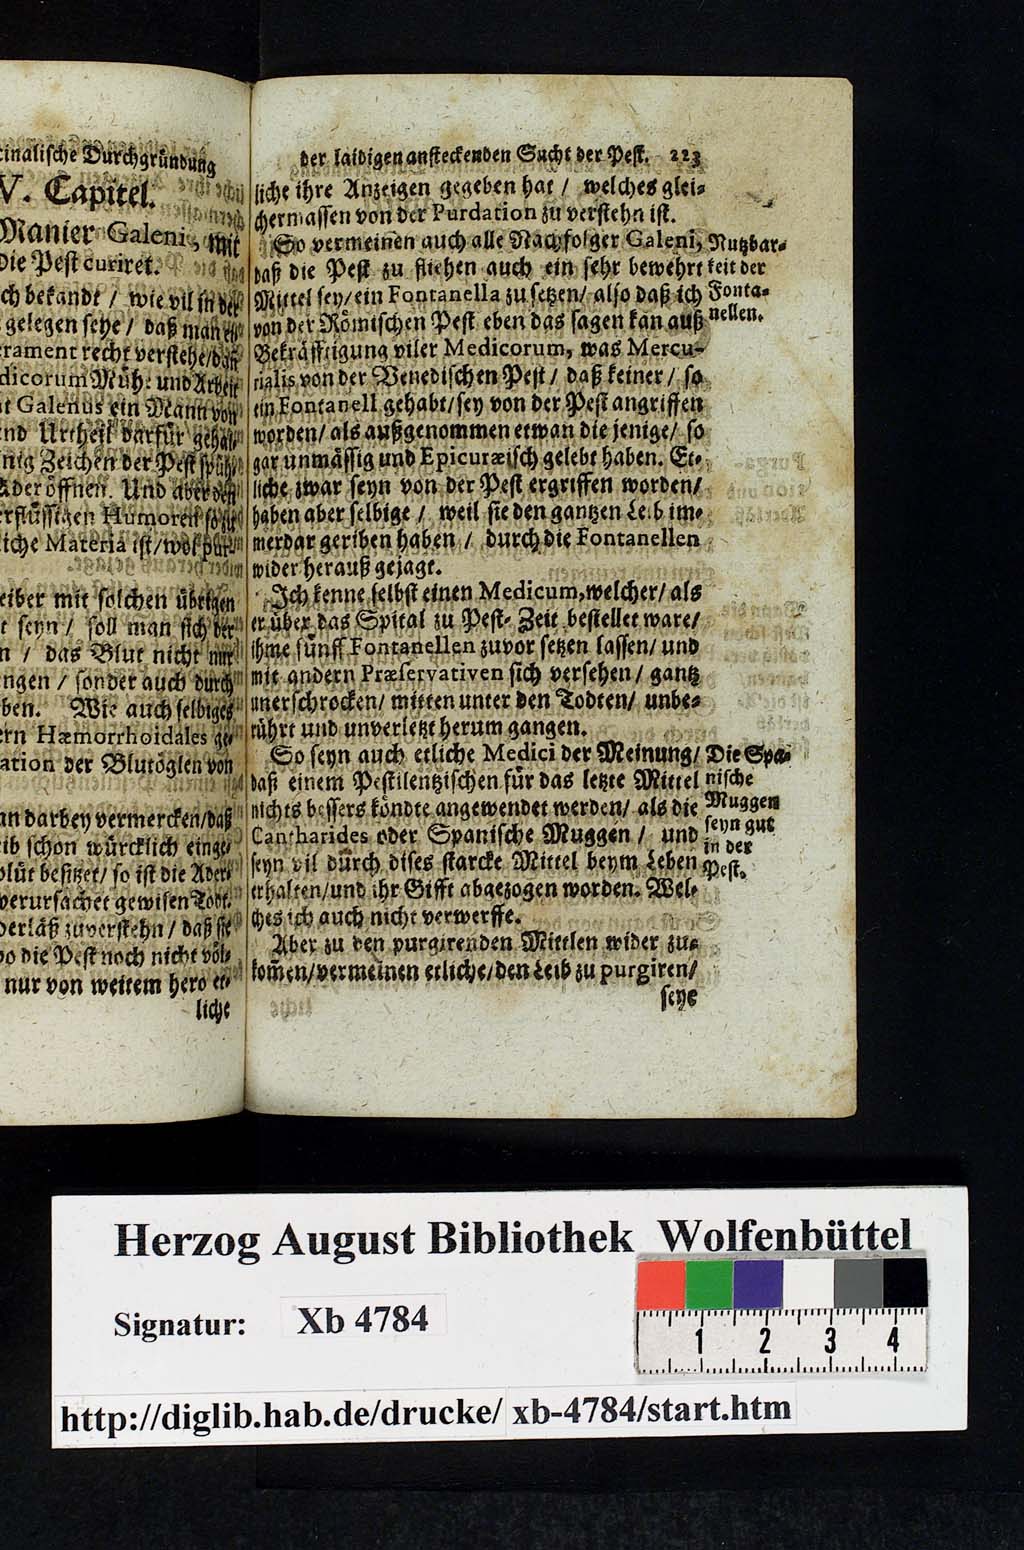 cinalische Durchgründung
V. Capitel.
Manier Galeni, mit
die Pest curiret.
ch bekandt / wie vil in der
gelegen seye / daß man
rament recht verstehe/ daß
dicorum Müh: und Arbeit
t Galenus ein Mann von
nd Urtheil darfür gehal-
nig Zeichen der Pest
Ader öffnen. Und aber
erflüssigen Humoren
liche Materia ist/ wol
eiber mit solchen übrigen
t seyn / soll man sich der
n / das Blut nicht nur
ngen / sonder auch durch
ben. Wie auch selbiges
ern Hæmorrhoidales ge-
ation der Blutöglen von
an darbey vermercken/ daß
ib schon würcklich einge-
blüt besitzet/ so ist die Ader-
verursachet gewisen Todt.
derläß zuverstehn / daß sie
wo die Pest noch nicht völ-
nur von weitem hero et-
liche
der laidigen ansteckenden Sucht der Pest. 223
liche ihre Anzeigen gegeben hat / welches glei-
chermassen von der Purdation zu verstehn ist.
So vermeinen auch alle Nachfolger Galeni,
daß die Pest zu fliehen auch ein sehr bewehrt
Mittel sey/ ein Fontanella zu setzen/ also daß ich
von der Römischen Pest eben das sagen kan auß
Bekräfftigung viler Medicorum, was Mercu-
rialis von der Venedischen Pest / daß keiner / so
ein Fontanell gehabt/ sey von der Pest angriffen
worden/ als außgenommen etwan die jenige/ so
gar unmässig und Epicuræisch gelebt haben. Et-
liche zwar seyn von der Pest ergriffen worden/
haben aber selbige / weil sie den gantzen Leib im-
merdar geriben haben / durch die Fontanellen
wider herauß gejagt.
Ich kenne selbst einen Medicum, welcher/ als
er über das Spital zu Pest- Zeit bestellet ware/
ihme fünff Fontanellen zuvor setzen lassen/ und
mit andern Præservativen sich versehen / gantz
unerschrocken/ mitten unter den Todten/ unbe-
rührt und unverletzt herum gangen.
So seyn auch etliche Medici der Meinung/
daß einem Pestilentzischen für das letzte Mittel
nichts bessers köndte angewendet werden/ als die
Cantharides oder Spanische Muggen / und
seyn vil durch dises starcke Mittel beym Leben
erhalten/ und ihr Gifft abgezogen worden. Wel-
ches ich auch nicht verwerffe.
Aber zu den purgirenden Mittlen wider zu-
kom̃en/ vermeinen etliche/ den Leib zu purgiren/
seye
Nutzbar-
keit der
Fonta-
nellen.
Die Spa-
nische
Muggen
seyn gut
in der
Pest.
Herzog August Bibliothek Wolfenbüttel
Signatur: Xb 4784
1 2 3 4
http://diglib.hab.de/drucke/ xb-4784/start.htm